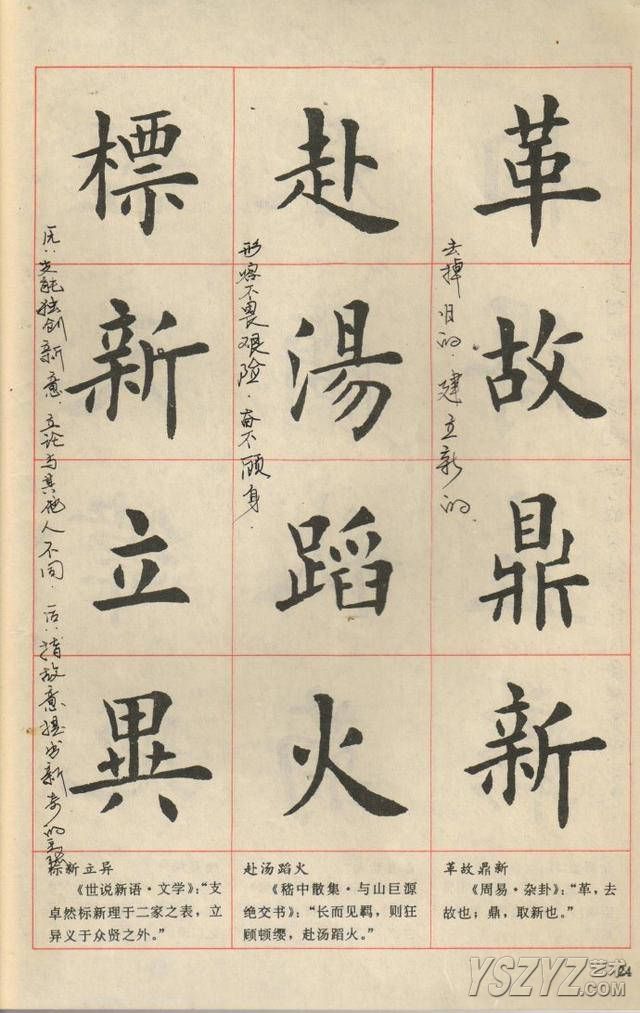 革故鼎新
去掉旧的.建立新的.
赴湯蹈火
形容不畏艰险.奋不顾身.
標新立異
先能独创新意.立论与其他人不同.后指故意提出新奇的主张
革故鼎新
《周易·杂卦》：“革，去
故也；鼎，取新也。”
赴汤蹈火
《嵇中散集·与山巨源
绝交书》：“长而见羁，则狂
顾顿缨，赴汤蹈火。”
标新立异
《世说新语·文学》：“支
卓然标新理于二家之表，立
异义于众贤之外。”
24
YSZYZ艺术
.COM